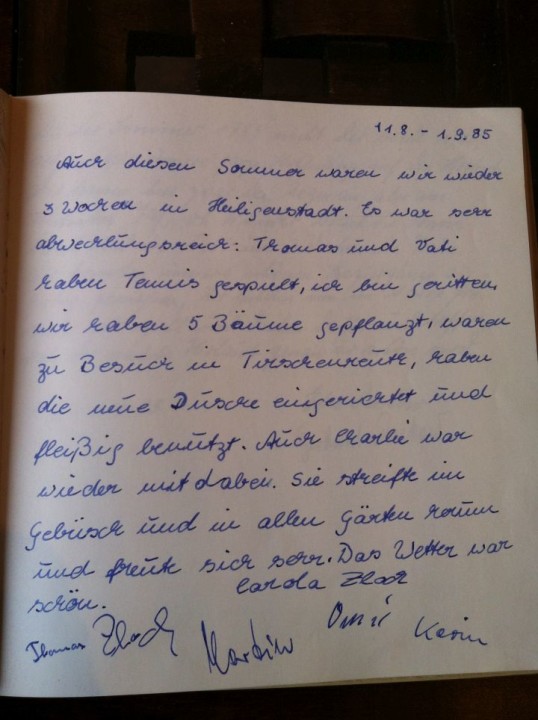 11.8. - 1.9.85
Auch diesen Sommer waren wir wieder
3 Wochen in Heiligenstadt. Es war sehr
abwechlungsreich: Thomas und Vati
haben Tennis gespielt, ich bin geritten,
wir haben 5 Bäume gepflanzt, waren
zu Besuch in Tirschenreuth, haben
die neue Dusche eingerichtet und
fleißig benutzt. Auch Charlie war
wieder mit dabei. Sie streifte im
Gebüsch und in allen Gärten herum
und freute sich sehr. Das Wetter war
schön.
Carola Zloch
Thomas Zloch Martin Omi Karin